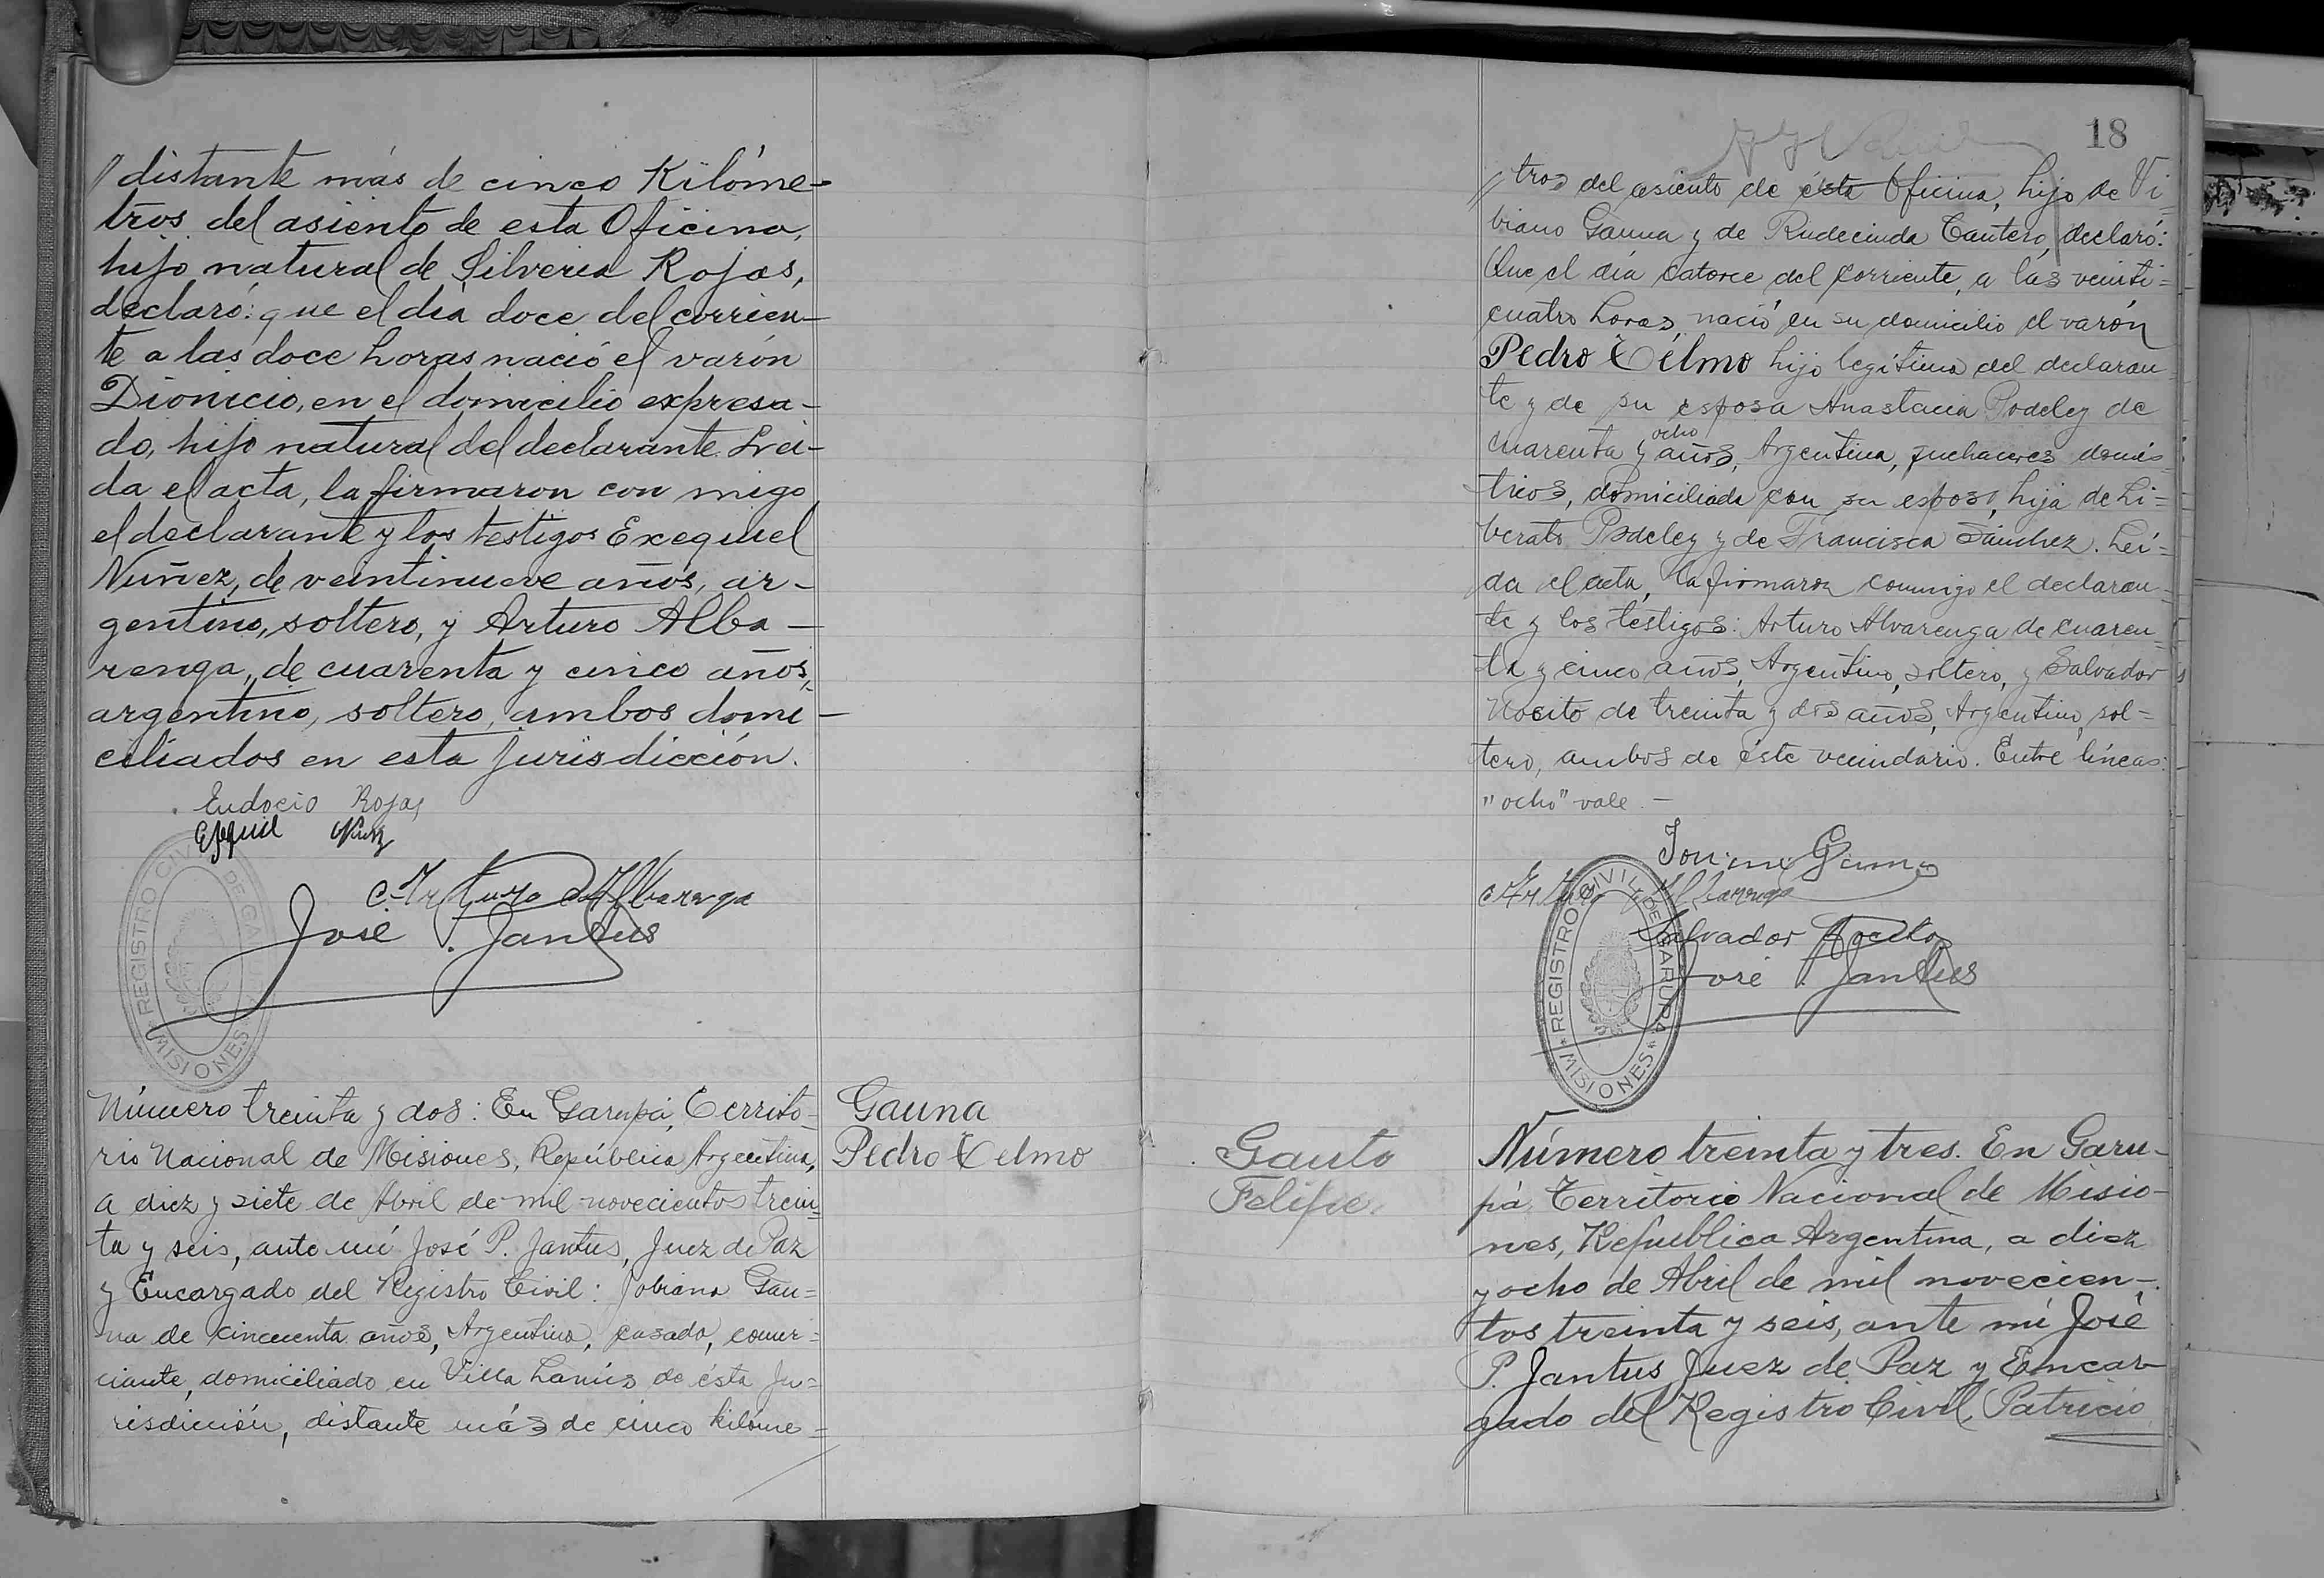 // distante más de cinco Kilóme-
tros del asiento de esta Oficina,
hijo natural de Silveria Rojas,
declaró: que el día doce del corrien-
te a las doce horas nació el varón
Dionicio, en el domicilio expresa-
do, hijo natural del declarante. Leí-
da el acta, la firmaron con migo
el declarante y los testigos Exequiel
Nuñez, de veintinueve años, ar-
gentino, soltero, y Arturo Alba-
renga, de cuarenta y cinco años,
argentino, soltero, ambos domi-
ciliados en esta jurisdicción.
Eudocio Rojas
Arturo Albarenga
José P. Jantus
REGISTRO CIVIL DE GARUPA
MISIONES
Número treinta y dos: En Garupá, Territo-
rio Nacional de Misiones, República Argentina,
a diez y siete de Abril de mil novecientos trein-
ta y seis, ante mí José P. Jantus, Juez de Paz
y Encargado del Registro Civil: Gau=
na de cincuenta años, Argentino, casado, comer=
ciante, domiciliado en Villa Lanús de ésta Ju=
risdicción, distante más de cinco kilóme=
Gauna
Pedro Telmo
18
// tros del asiento de ésta Oficina, hijo de Vi=
biano Gauna y de Rudecinda Cantero, declaró:
Que el día catorce del corriente, a las veinti=
cuatro horas nació en su domicilio el varón
Pedro Télmo hijo legítimo del declaran
te y de su esposa Anastacia Podeley de
ocho
cuarenta y años, Argentina, quehaceres domés
ticos, domiciliada con su esposo, hija de Li=
berato Podeley y de Francisca Sánchez. Leí=
da el acta, la firmaron conmigo el declaran=
te y los testigos: Arturo Alvarenga de cuaren=
ta y cinco años, Argentino, soltero, y Salvador
Nocito de treinta y dos años, Argentino, sol=
tero, ambos de éste vecindario. Entre líneas:
"ocho" vale.-
Arturo Albarenga
Salvador Nocito
José P. Jantus
REGISTRO CIVIL DE GARUPA
MISIONES
Gauto
Felipe.
Número treinta y tres. En Garu-
pá, Territorio Nacional de Misio-
nes, Republica Argentina, a diez
y ocho de Abril de mil novecien-
tos treinta y seis, ante mí José
P. Jantus Juez de Paz y Encar-
gado del Registro Civil, Patricio